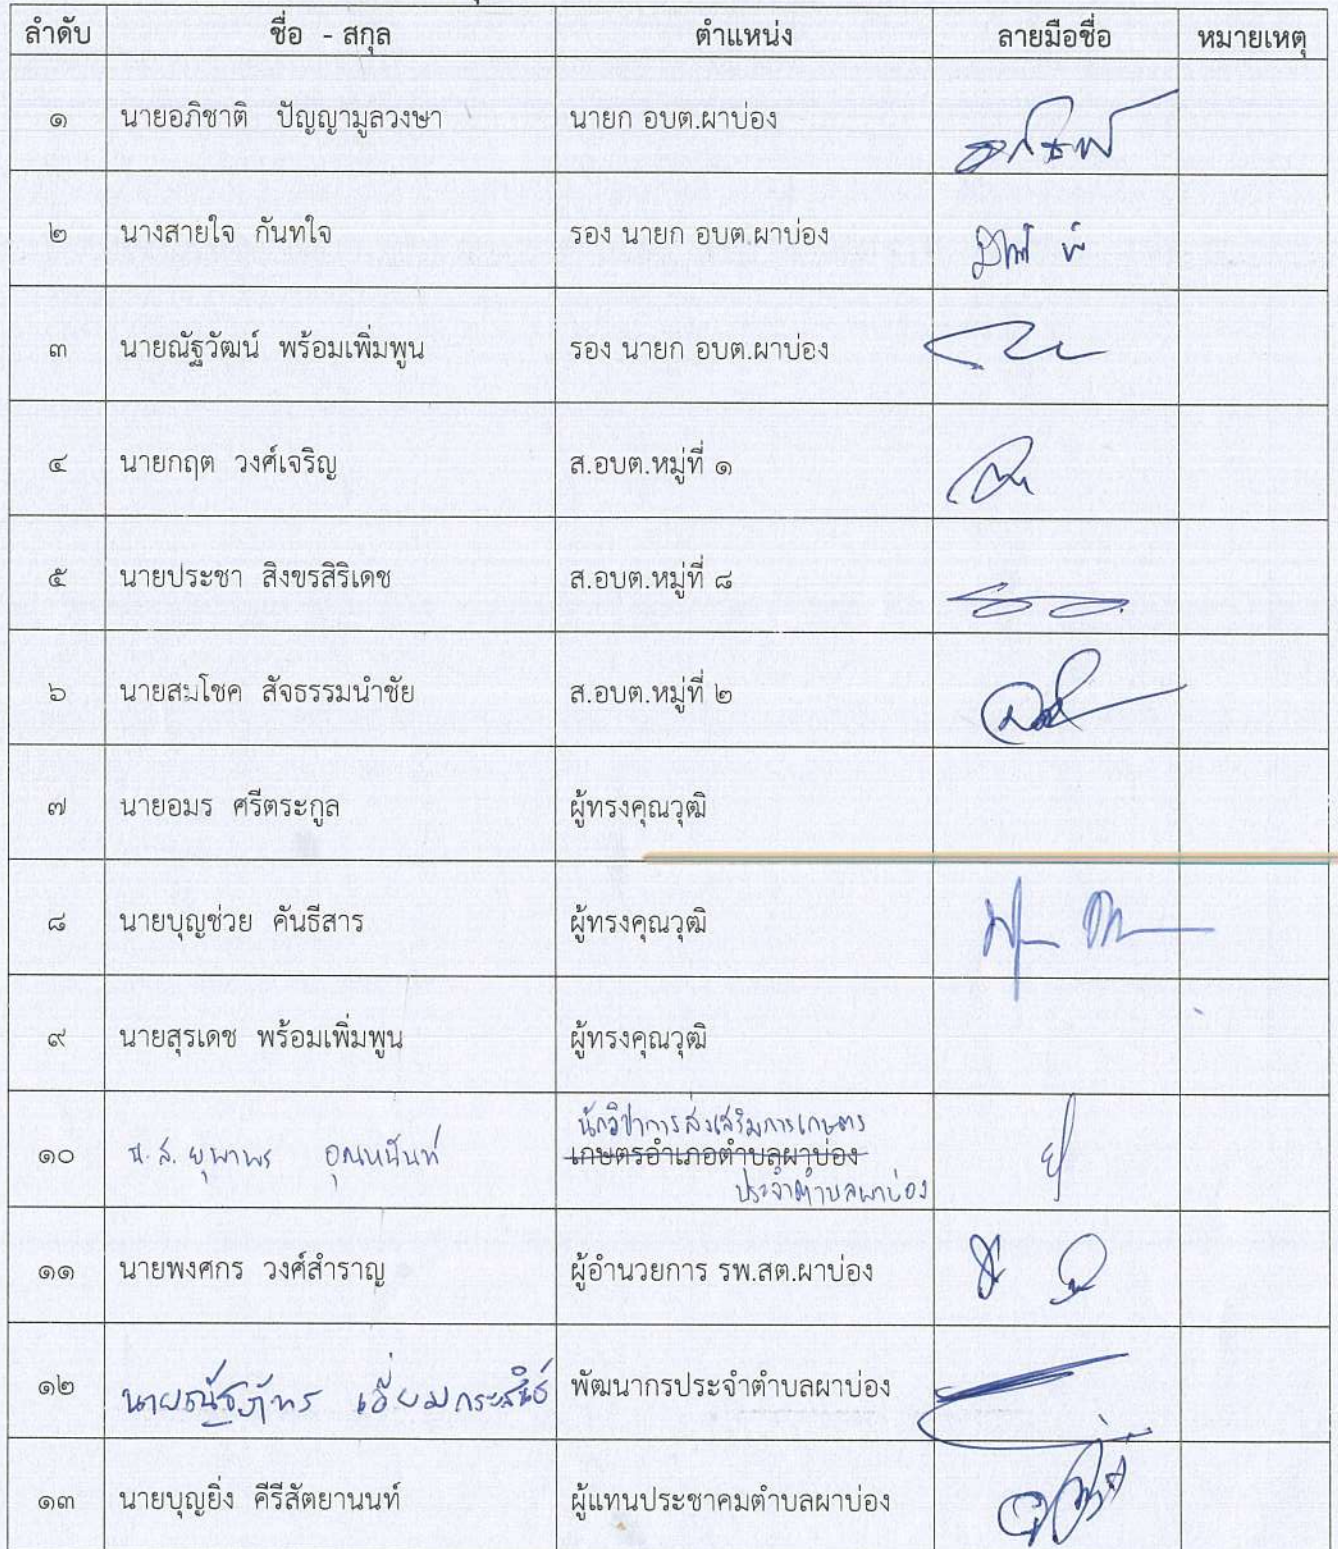 ลำดับ ชื่อ - สกุล ตำแหน่ง ลายมือชื่อ หมายเหตุ
๑ นายอภิชาติ ปัญญามูลวงษา นายก อบต.ผาบ่อง
๒ นางสายใจ กันทใจ รอง นายก อบต.ผาบ่อง
๓ นายณัฐวัฒน์ พร้อมเพิ่มพูน รอง นายก อบต.ผาบ่อง
๔ นายกฤต วงศ์เจริญ ส.อบต.หมู่ที่ ๑
๕ นายประชา สิงขรสิริเดช ส.อบต.หมู่ที่ ๘
๖ นายสมโชค สัจธรรมนำชัย ส.อบต.หมู่ที่ ๒
๗ นายอมร ศรีตระกูล ผู้ทรงคุณวุฒิ
๘ นายบุญช่วย คันธีสาร ผู้ทรงคุณวุฒิ
๙ นายสุรเดช พร้อมเพิ่มพูน ผู้ทรงคุณวุฒิ
นักวิชาการส่งเสริมการเกษตร
๑๐ น.ส. ยุพาพร อุณหนันท์ เกษตรอำเภอตำบลผาบ่อง
ประจำตำบลผาบ่อง
๑๑ นายพงศกร วงศ์สำราญ ผู้อำนวยการ รพ.สต.ผาบ่อง
๑๒ พัฒนากรประจำตำบลผาบ่อง
๑๓ นายบุญยิ่ง คีรีสัตยานนท์ ผู้แทนประชาคมตำบลผาบ่อง